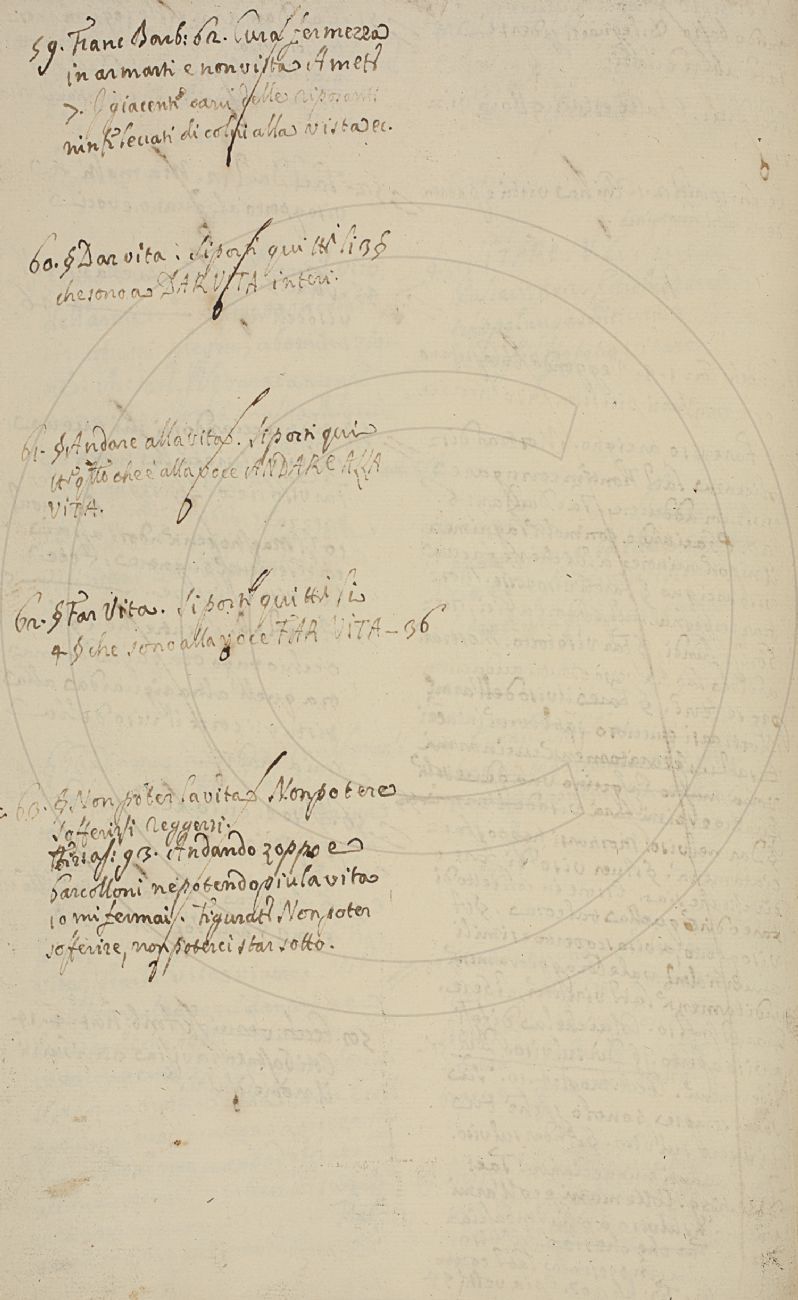 59. Franc Barb: 62. Cura fermezza
in armarti e non vista Amet.
7. I giacenti cani delle riposanti
ninfe levati di colui alla vista ec.
60. § Dar vita. Si porti qui tti li 3 §
che sono a DAR VITA interi.
61. § Andare alla vita. Si porti qui
tto qto che è alla voce ANDARE ALLA
VITA.
62. § Far Vita. Si porti qui tti li
4 § che sono alla voce FAR VITA – 36
63. § Non poter la vita. Non potere
sofferirsi reggersi.
93. Andando zoppo e
barcolloni ne potendo piu la vita
io mi fermai. Figurat. Non poter
soferire, non poterci star sotto.